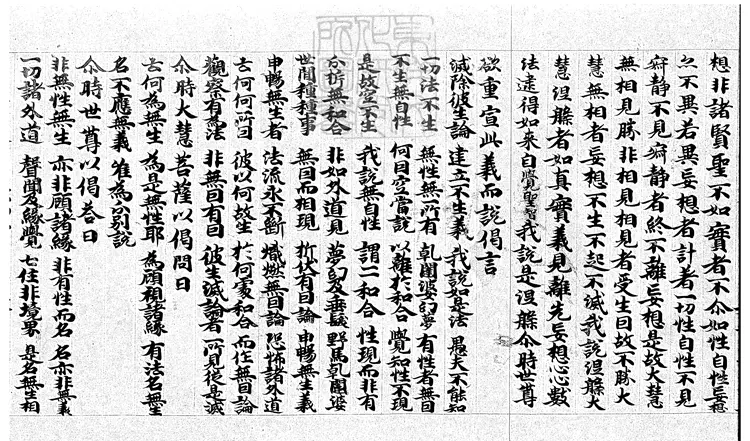 想非諸賢聖不如實者不尒如性自性妄想
之不異若異妄想者計著一切性自性不見
寂静不見寂静者終不離妄想是故大慧
無相見勝非相見相見者受生因故不勝大
慧無相者妄想不生不起不滅我說涅槃大
慧涅槃者如真實義見離先妄想心心數
法逮得如來自覺聖智我說是涅槃尒時世尊
欲重宣此義而說偈言
滅除彼生論 建立不生義 我說如是法 愚夫不能知
一切法不生 無性無所有 乹闥婆幻夢 有性者無因
不生無自性 何因空當說 以離於和合 覺知性不現
是故空不生 我說無自性 謂一一和合 性現而非有
分析無和合 非如外道見 夢幻及垂髮 野馬乹闥婆
世間種種事 無因而相現 折伏有因論 申暢無生義
申暢無生者 法流永不斷 熾燃無因論 恐怖諸外道
云何何所因 彼以何故生 於何處和合 而作無因論
觀察有為法 非無因有因 彼生滅論者 所見從是滅
尒時大慧菩薩以偈問曰
云何為無生 為是無性耶 為顧視諸緣 有法名無生
名不應無義 惟為分別說
尒時世尊以偈荅曰
非無性無生 亦非顧諸緣 非有性而名 名亦非無義
一切諸外道 聲聞及緣覺 七住非境界 是名無生相